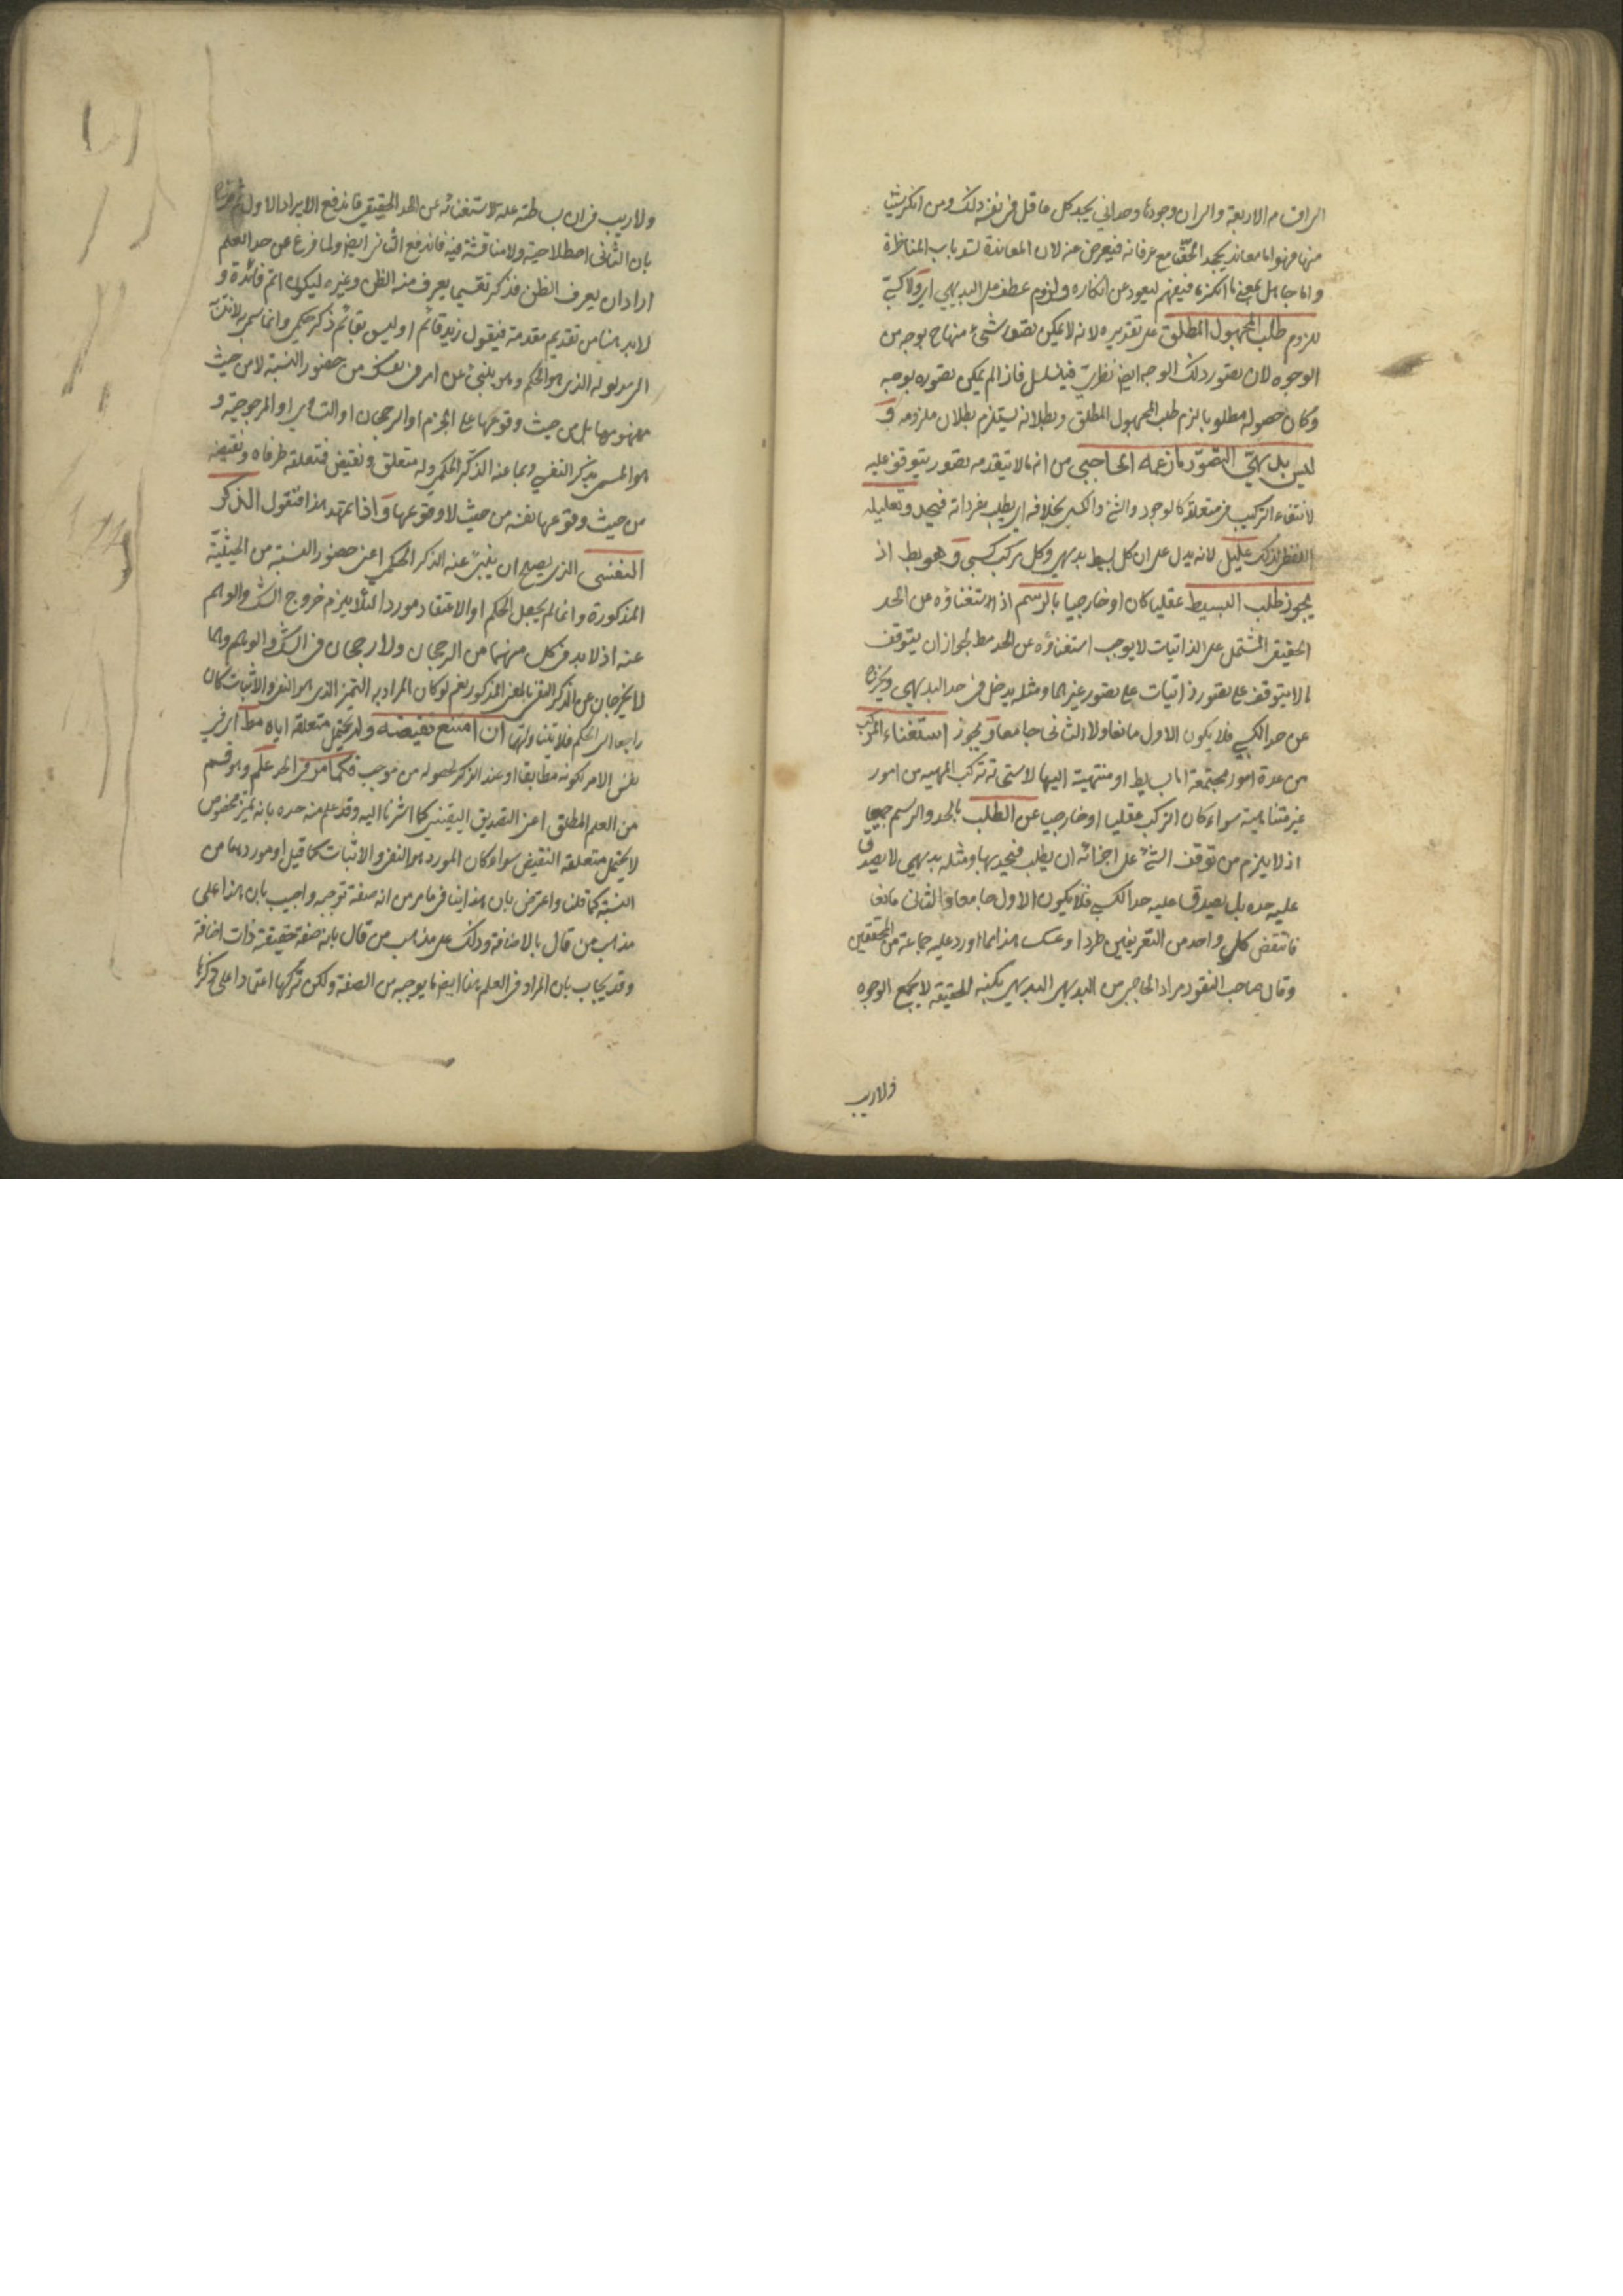 الى اقسامه الاربعة والى ان وجودها وجداني يجد كل عاقل في نفسه ذلك ومن انكر شيئا
منها فهو اما معاند يجحد الحق مع عرفانه فيعرض عنه لان المعاندة تسد باب المناظرة
واما جاهل بمعنى ما انكره فيفهم ليعود عن انكاره ولزوم عطف على البديهي اي ولا كسبي
للزوم طلب المجهول المطلق على تقديره لانه لا يمكن تصور شيء منها ح بوجه من
الوجوه لان تصور ذلك الوجه ايض نظري فيتسلسل فاذا لم يمكن تصوره بوجه
وكان حصوله مطلوبا لزم طلب المجهول المطلق وبطلانه يستلزم بطلان ملزومه و
ليس بديهي التصور ما زعمه الحاجبي من انه ما لا يتقدمه تصور يتوقف عليه
لانتفاء التركيب في متعلقه كالوجود والشيء والكسبي بخلافه اي يطلب بمفرداته فيحد وتعليله
اللفظي لذلك عليل لانه يدل على ان كل بسيط بديهي وكل مركب كسبي وهو بط اذ
يجوز طلب البسيط عقليا كان او خارجيا بالرسم اذ استغناؤه عن الحد
الحقيقي المشتمل على الذاتيات لا يوجب استغناؤه عن الحد مط لجواز ان يتوقف
ما لا يتوقف على تصور ذاتيات على تصور غيرها ومثله يدخل في حد البديهي ويخرج
عن حد الكسبي فلا يكون الاول مانعا ولا الثاني جامعا ويجوز استغناء المركب
من عدة امور مجتمعة اما بسايط او منتهية اليها لاستحالة تركب المهية من امور
غير متناهية سواء كان التركب عقليا او خارجيا عن الطلب بالحد والرسم جميعا
اذ لا يلزم من توقف الشيء على اجزائه ان يطلب فيحد بها ومثله بديهي لا يصدق
عليه حده بل يصدق عليه حد الكسبي فلا يكون الاول جامعا والثاني مانعا
فانتقض كل واحد من التعريفين طردا وعكسا هذا مما اورد عليه جماعة من المحققين
وقال صاحب النقود مراد الحاجبي من البديهي البديهي بكنه الحقيقة لا بجميع الوجوه
ولا ريب
ولا ريب في ان بساطته علة لاستغنائه عن الحد الحقيقي فاندفع الايراد الاول
بان الثاني اصطلاحية ولا مناقشة فيه فاندفع الثاني ايض ولما فرغ عن حد العلم
اراد ان يعرف الظن فذكر تقسيما يعرف منه الظن وغيره ليكون اتم فائدة و
لا بد هنا من تقديم مقدمة فيقول زيد قائم او ليس بقائم ذكر حكمي وانما سمي به
الى مدلوله الذي هو الحكم وهو ينبئ عن امر في نفسك من حضور النسبة لا من حيث
مفهومها بل من حيث وقوعها على الجزم او الرجحان او التساوي او المرجوحية و
هو المسمى بذكر النفسي وبما عنه الذكر الحكمي وله متعلق ونقيض فمتعلقه طرفاه ونقيضه
من حيث وقوعها نفسه من حيث لا وقوعها واذا تمهد هذا فنقول الذكر
النفسي الذي يصح ان ينبئ عنه الذكر الحكمي اعني حضور النسبة من الحيثية
المذكورة وانما لم يجعل الحكم او الاعتقاد موردا لئلا يلزم خروج الشك والوهم
عنه اذ لا بد في كل منهما من الرجحان ولا رجحان في الشك والوهم وهما
لا يخرجان عن الذكر النفسي بالمعنى المذكور نعم لو كان المراد به التميز الذي هو النفي والاثبات كان
راجعا الى الحكم فلا يتناولهما ان امتنع نقيضه ولم يحتمل متعلقه اياه مط اي في
نفس الامر بكونه مطابقا او عند الذاكر لحصوله من موجب كما مر في الحد علم وهو قسم
من العلم المطلق اعني التصديق اليقيني كما اشرنا اليه وقد علم منه حده بانه تميز مخصوص
لا يحتمل متعلقه النقيض سواء كان المورد هو النفي والاثبات كما قيل او موردهما من
النسبة كما قلنا واعترض بان هذا ينافي ما مر من انه صفة توجبه واجيب بان هذا على
مذهب من قال بالاضافة وذلك على مذهب من قال بانه صفة حقيقية ذات اضافة
وقد يجاب بان المراد في العلم هنا ايض ما يوجبه من الصفة ولكن تركها اعتمادا على ذكرها